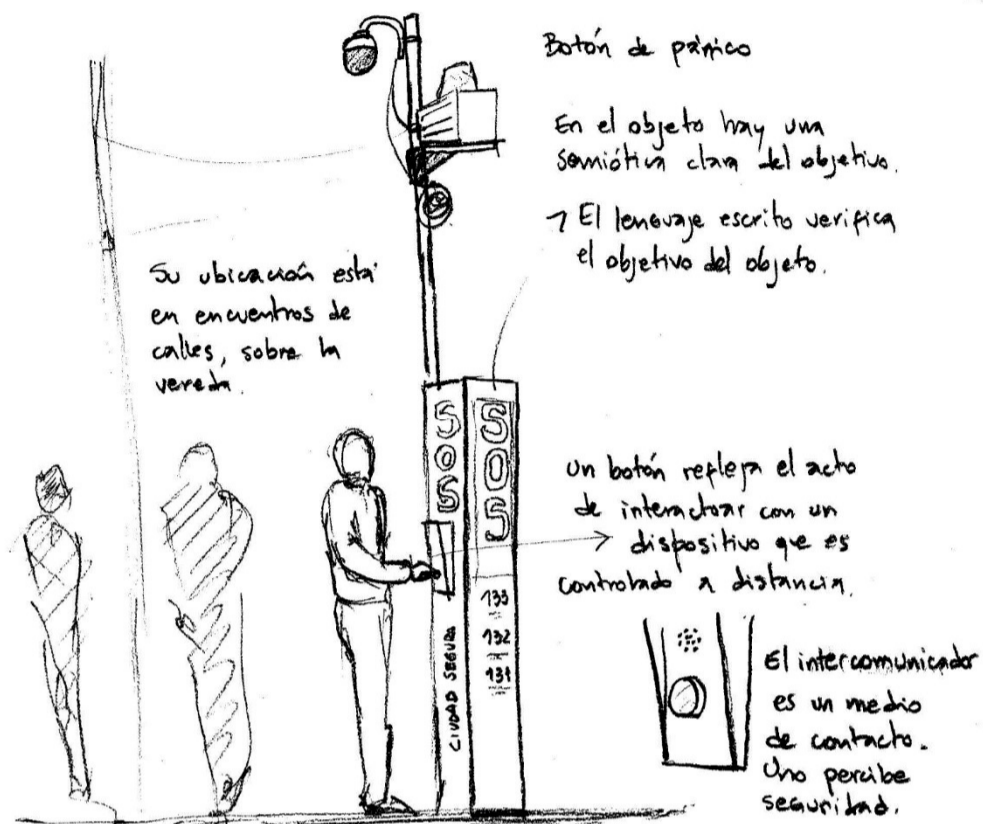 Botón de pánico
En el objeto hay una
semiótica clara del objetivo.
→ El lenguaje escrito verifica
el objetivo del objeto.
Su ubicación está
en encuentros de
calles, sobre la
vereda.
SOS
SOS
Un botón refleja el acto
de interactuar con un
dispositivo que es
controlado a distancia.
133
132
131
CIUDAD SEGURA
El intercomunicador
es un medio
de contacto.
Uno percibe
seguridad.